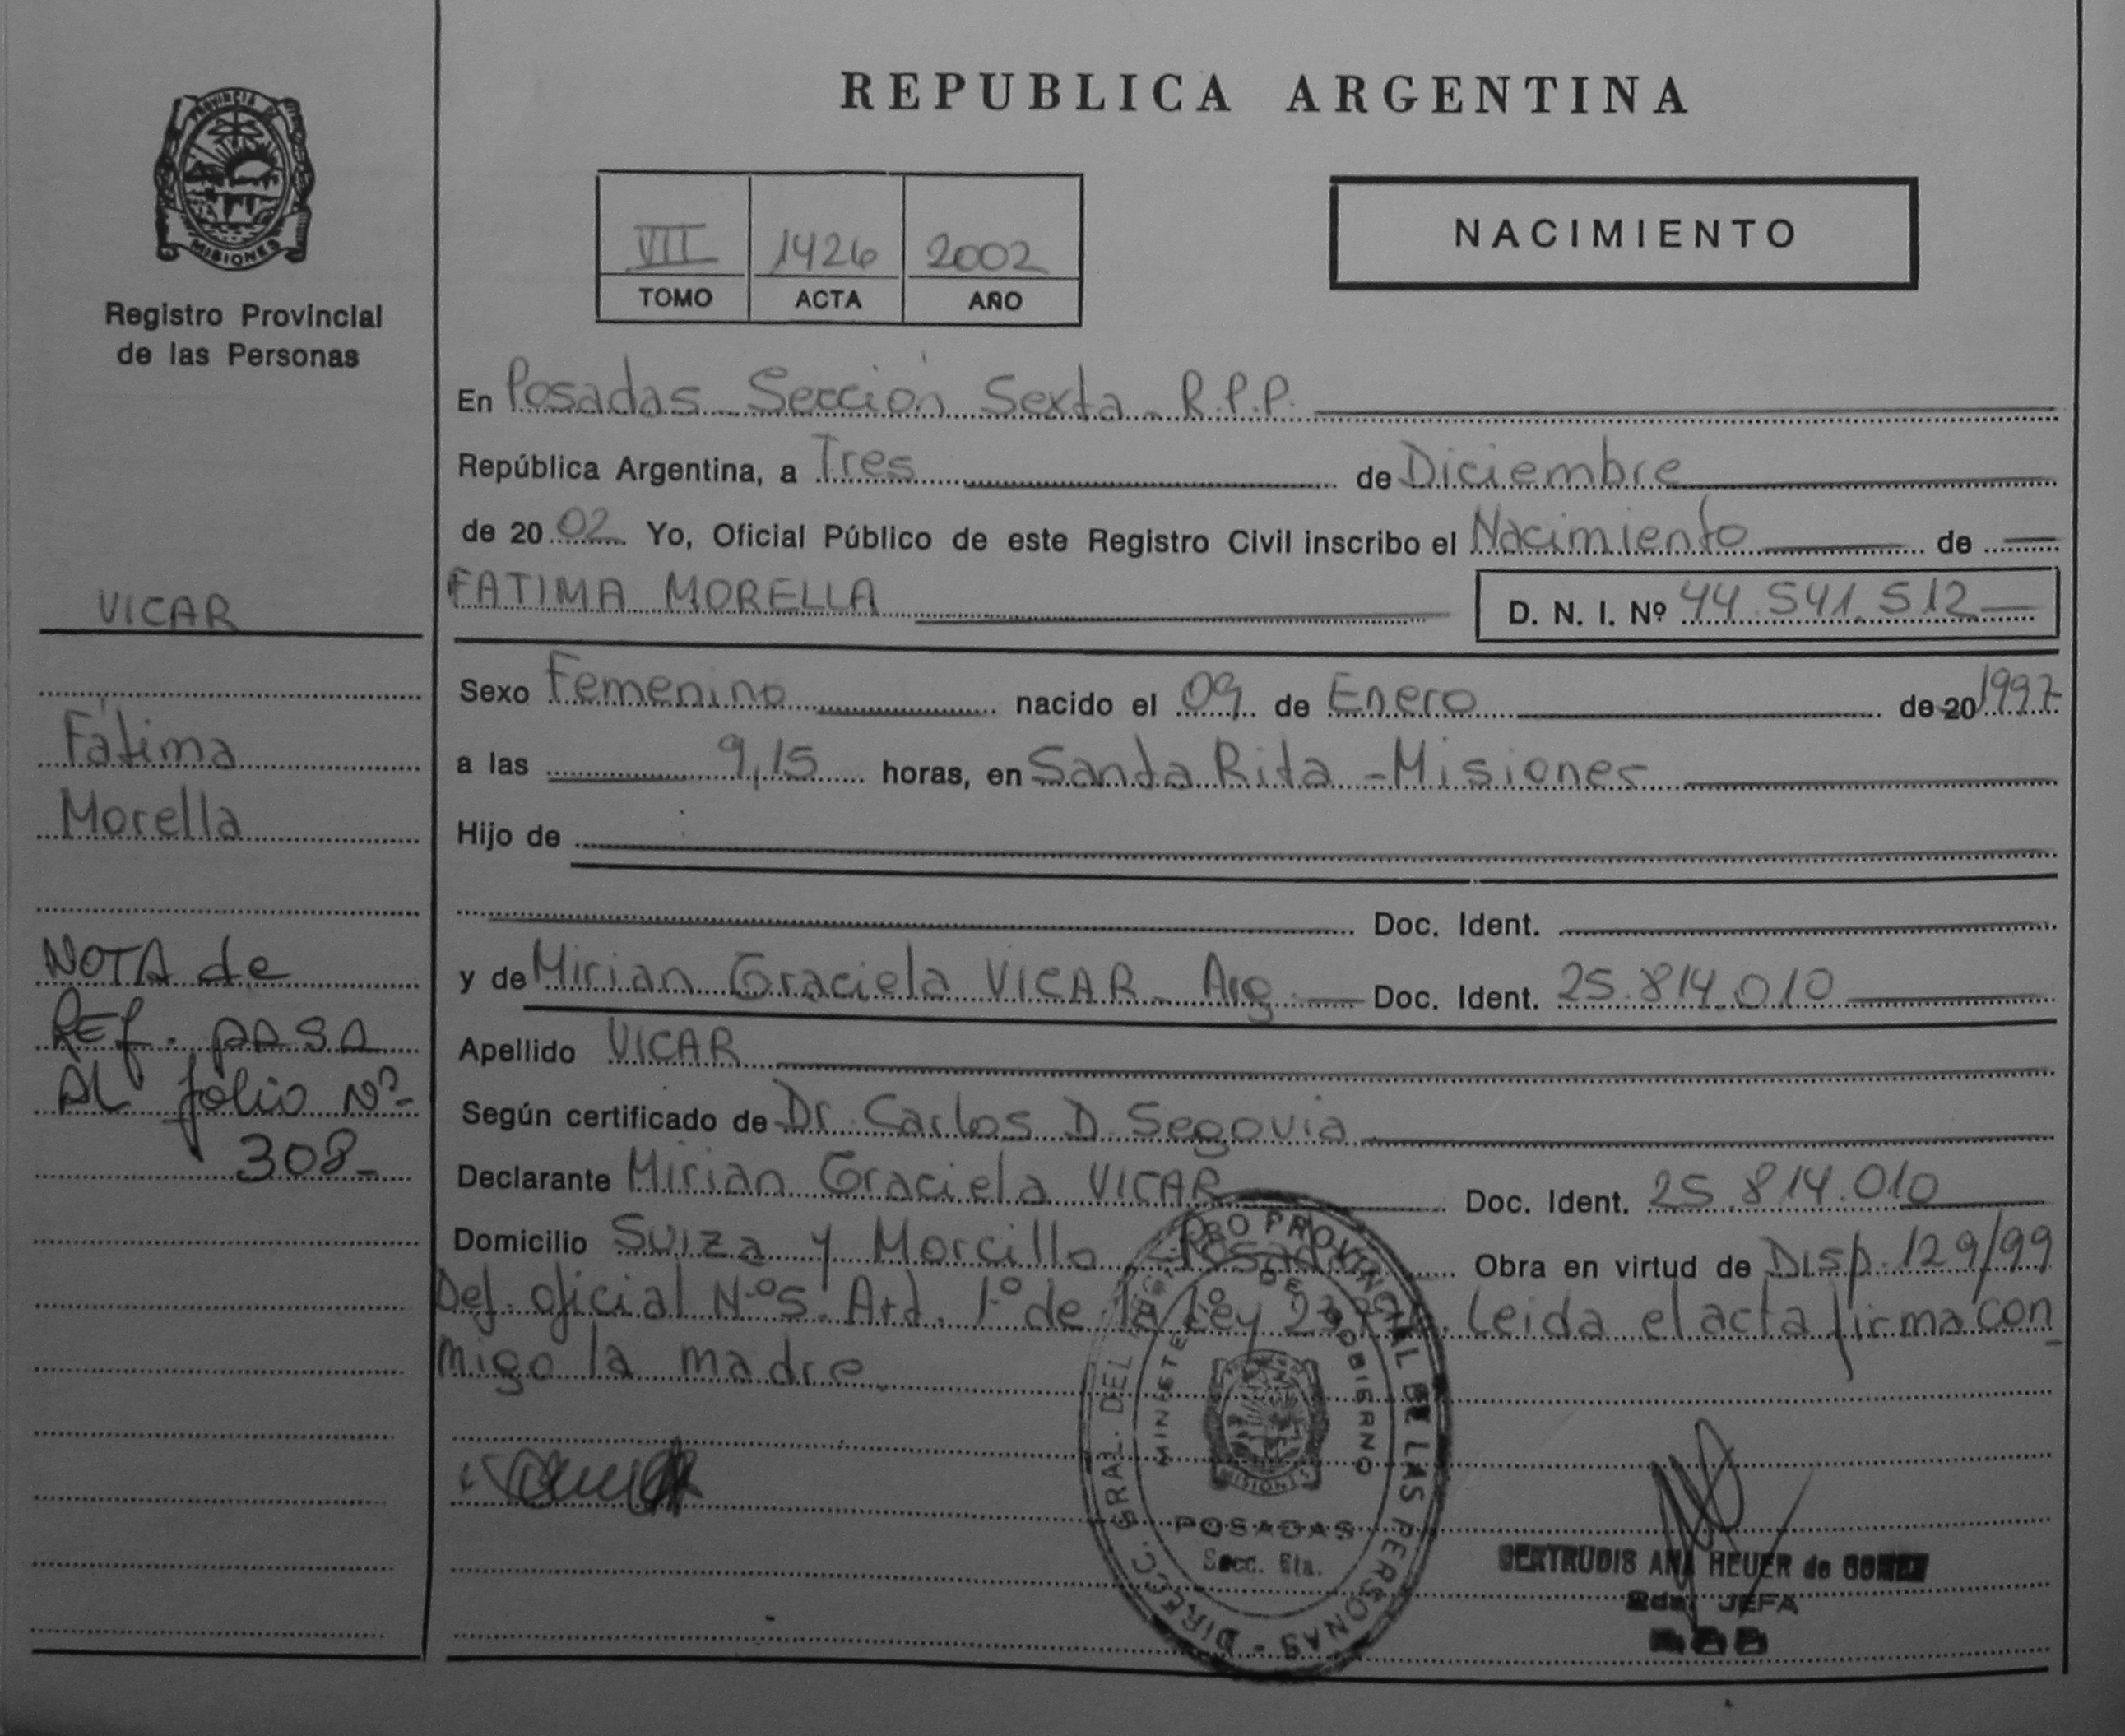 REPUBLICA ARGENTINA
PROVINCIA DE
MISIONES
Registro Provincial
de las Personas
VII 1426 2002
TOMO ACTA AÑO
NACIMIENTO
VICAR
Fátima
Morella
NOTA de
REf. pASA
AL folio Nº
308-
En Posadas - Sección Sexta - R.P.P.
República Argentina, a Tres de Diciembre
de 20 02 Yo, Oficial Público de este Registro Civil inscribo el Nacimiento de
FATIMA MORELLA D. N. I. Nº 44.541.512
Sexo Femenino nacido el 09 de Enero de 20 1997
a las 9,15 horas, en Santa Rita - Misiones
Hijo de
Doc. Ident.
y de Mirian Graciela VICAR - Arg. Doc. Ident. 25.814.010
Apellido VICAR
Según certificado de Dr. Carlos D. Segovia
Declarante Mirian Graciela VICAR Doc. Ident. 25.814.010
Domicilio Suiza y Morcillo - Posadas Obra en virtud de Disp. 129/99
Def. oficial Nº5. Art. 1º de la Ley Leida el acta firma con
migo la madre.
DIREC. GRAL. DEL REGISTRO PROVINCIAL DE LAS PERSONAS -
MINISTERIO DE GOBIERNO
MISIONES
POSADAS
Secc. 6ta.
GERTRUDIS ANA HEUER de GOMEZ
2da. JEFA